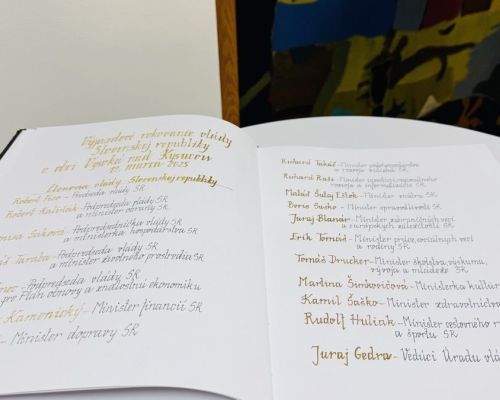 Výjazdové rokovanie vlády
Slovenskej republiky
v obci Vysoká nad Kysucou
marca 2025
Členovia vlády Slovenskej republiky
Robert Fico - Predseda vlády SR
Robert Kaliňák - Podpredseda vlády
a minister obrany SR
Saková - Podpredsedníčka vlády
a ministerka hospodárstva SR
Taraba - Podpredseda vlády SR
a minister životného prostredia SR
Podpredseda vlády SR
pre Plán obnovy a znalostnú ekonomiku
Kamenický - Minister financií SR
- Minister dopravy SR
Richard Takáč - Minister pôdohospodárstva
a rozvoja vidieka SR
Richard Raši - Minister investícií, regionálneho
rozvoja a informatizácie SR
Matúš Šutaj Eštok - Minister vnútra SR
Boris Susko - Minister spravodlivosti SR
Juraj Blanár - Minister zahraničných vecí
a európskych záležitostí SR
Erik Tomáš - Minister práce, sociálnych vecí
a rodiny SR
Tomáš Drucker - Minister školstva, výskumu,
vývoja a mládeže SR
Martina Šimkovičová - Ministerka kultúr
Kamil Šaško - Minister zdravotníctva
Rudolf Huliak - Minister cestovného r
a športu SR
Juraj Gedra - Vedúci Úradu vlá